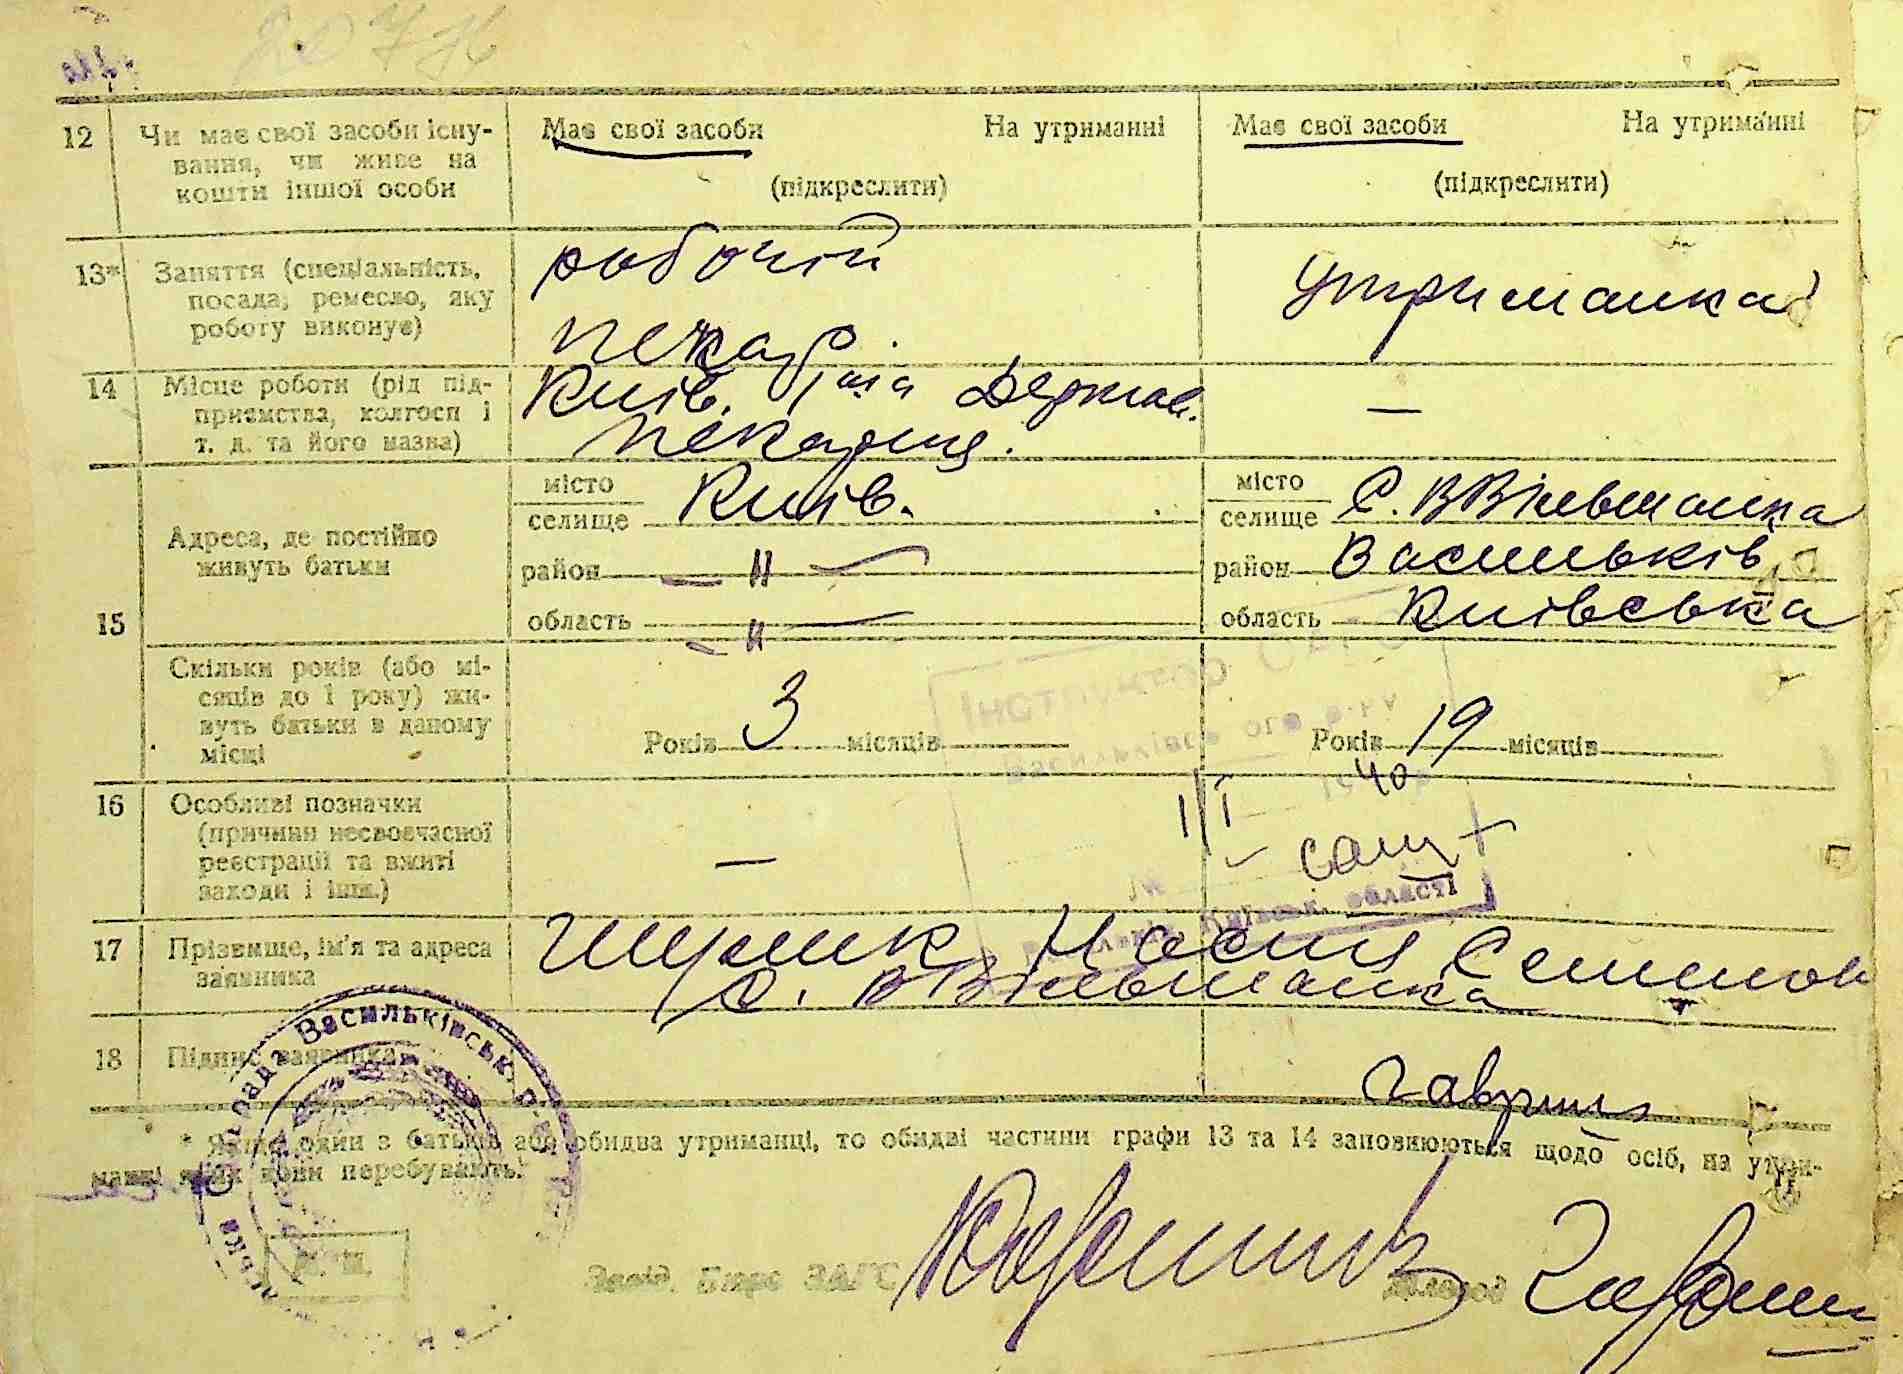 12 Чи має свої засоби існу- Має свої засоби На утриманні Має свої засоби На утриманні
вання, чи живе на
кошти іншої особи (підкреслити) (підкреслити)
13* Заняття (спеціальність, робочій утриманка
посада, ремесло, яку
роботу виконує) пекар.
14 Місце роботи (рід під- Київ. Держав. —
приємства, колгосп і пекарня.
т. д. та його назва)
15 Адреса, де постійно живуть батьки
місто селище Київ. місто селище С. ВВільшанка
район — „ — район Васильків
область — „ — область Київська
Скільки років (або мі-
сяців до 1 року) жи-
вуть батьки в даному
місці
Років 3 місяців Років 19 місяців
Інструктор
Васильківс ого р-ну
1/I 1940
Київськ. області
16 Особливі позначки —
(причини несвоєчасної
реєстрації та вжиті
заходи і інш.)
17 Прізвище, ім'я та адреса
заявника
с. ВВільшанка
18 Підпис заявника
* Якщо один з батьків або обидва утриманці, то обидві частини графи 13 та 14 заповнюються щодо осіб, на утри-
манні яких вони перебувають.
М. П.
Завід. Бюро ЗАГС Діловод
Васильківськ. р-ну